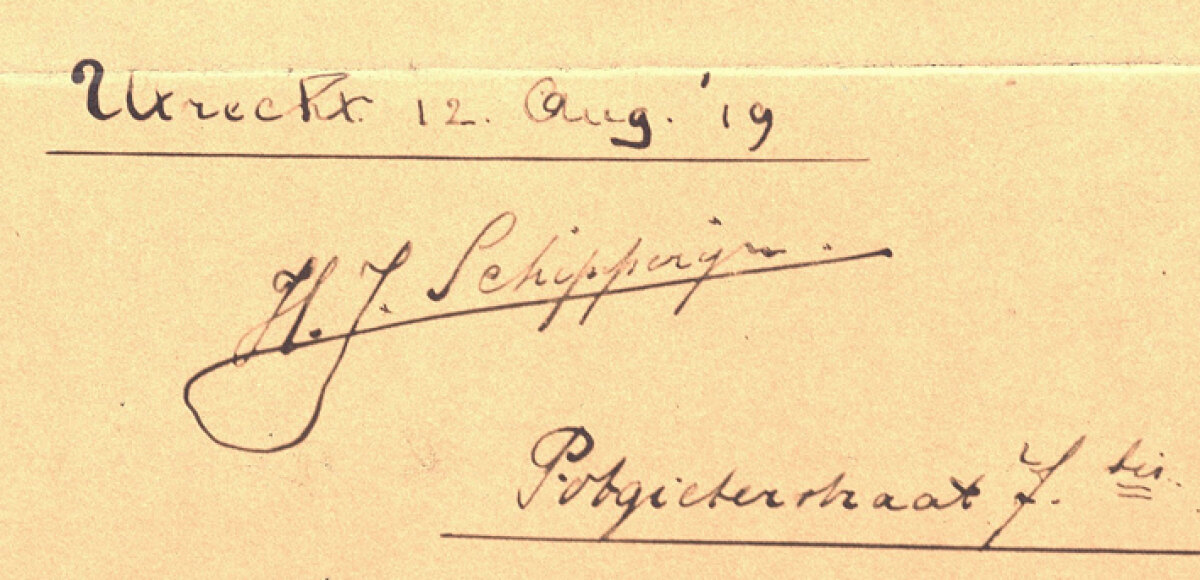 Utrecht 12. Aug. '19
H. J. Schipperijn.
Potgieterstraat 7. bis.